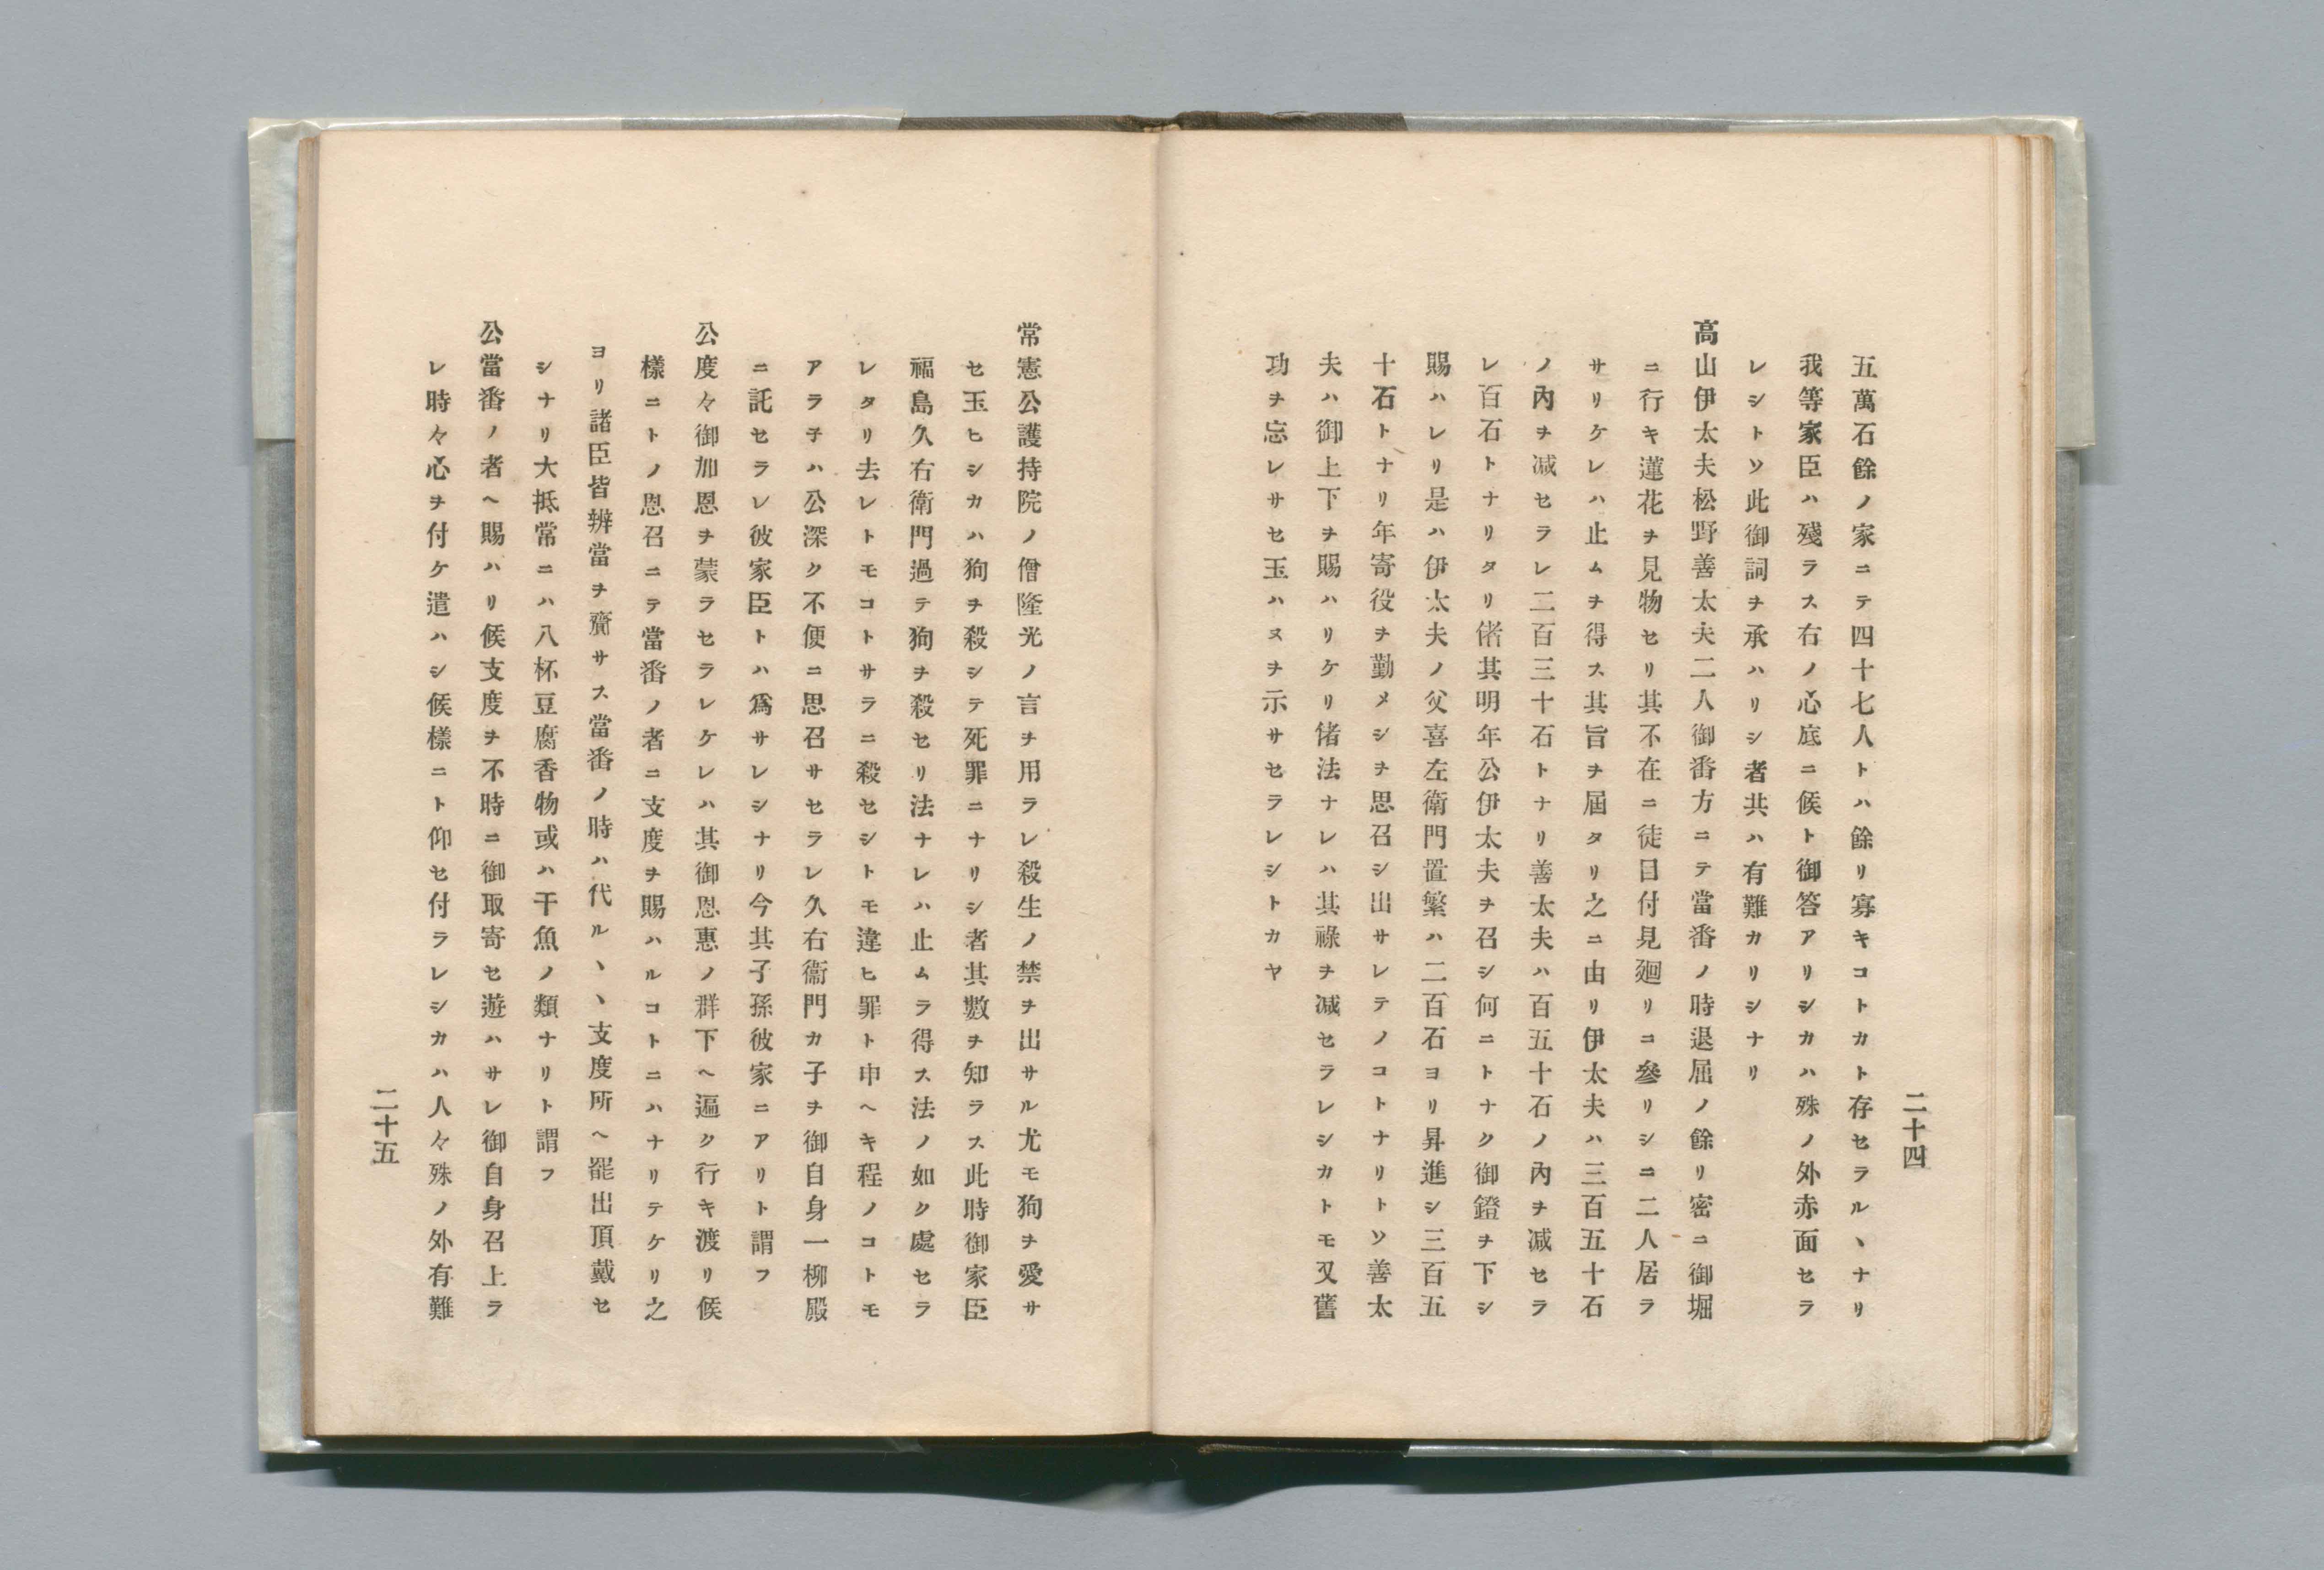 二十四
五萬石餘ノ家ニテ四十七人トハ餘リ寡キコトカト存セラルヽナリ
我等家臣ハ殘ラス右ノ心底ニ候ト御答アリシカハ殊ノ外赤面セラ
レシトソ此御詞ヲ承ハリシ者共ハ有難カリシナリ
高山伊太夫松野善太夫二人御番方ニテ當番ノ時退屈ノ餘リ密ニ御堀
ニ行キ蓮花ヲ見物セリ其不在ニ徒目付見廻リニ參リシニ二人居ラ
サリケレハ止ムヲ得ス其旨ヲ屆タリ之ニ由リ伊太夫ハ三百五十石
ノ內ヲ減セラレ二百三十石トナリ善太夫ハ百五十石ノ內ヲ減セラ
レ百石トナリタリ偖其明年公伊太夫ヲ召シ何ニトナク御鐙ヲ下シ
賜ハレリ是ハ伊太夫ノ父喜左衛門置繁ハ二百石ヨリ昇進シ三百五
十石トナリ年寄役ヲ勤メシヲ思召シ出サレテノコトナリトソ善太
夫ハ御上下ヲ賜ハリケリ偖法ナレハ其祿ヲ減セラレシカトモ又舊
功ヲ忘レサセ玉ハヌヲ示サセラレシトカヤ
常憲公護持院ノ僧隆光ノ言ヲ用ラレ殺生ノ禁ヲ出サル尤モ狗ヲ愛サ
セ玉ヒシカハ狗ヲ殺シテ死罪ニナリシ者其數ヲ知ラス此時御家臣
福島久右衛門過テ狗ヲ殺セリ法ナレハ止ムヲ得ス法ノ如ク處セラ
レタリ去レトモコトサラニ殺セシトモ違ヒ罪ト申ヘキ程ノコトモ
アラ子ハ公深ク不便ニ思召サセラレ久右衞門カ子ヲ御自身一柳殿
ニ託セラレ彼家臣トハ爲サレシナリ今其子孫彼家ニアリト謂フ
公度々御加恩ヲ蒙ラセラレケレハ其御恩惠ノ群下ヘ逼ク行キ渡リ候
樣ニトノ思召ニテ當番ノ者ニ支度ヲ賜ハルコトニハナリテケリ之
ヨリ諸臣皆辨當ヲ齎サス當番ノ時ハ代ルヽヽ支度所ヘ罷出頂戴セ
シナリ大抵常ニハ八杯豆腐香物或ハ干魚ノ類ナリト謂フ
公當番ノ者ヘ賜ハリ候支度ヲ不時ニ御取寄セ遊ハサレ御自身召上ラ
レ時々心ヲ付ケ遣ハシ候樣ニト仰セ付ラレシカハ人々殊ノ外有難
二十五